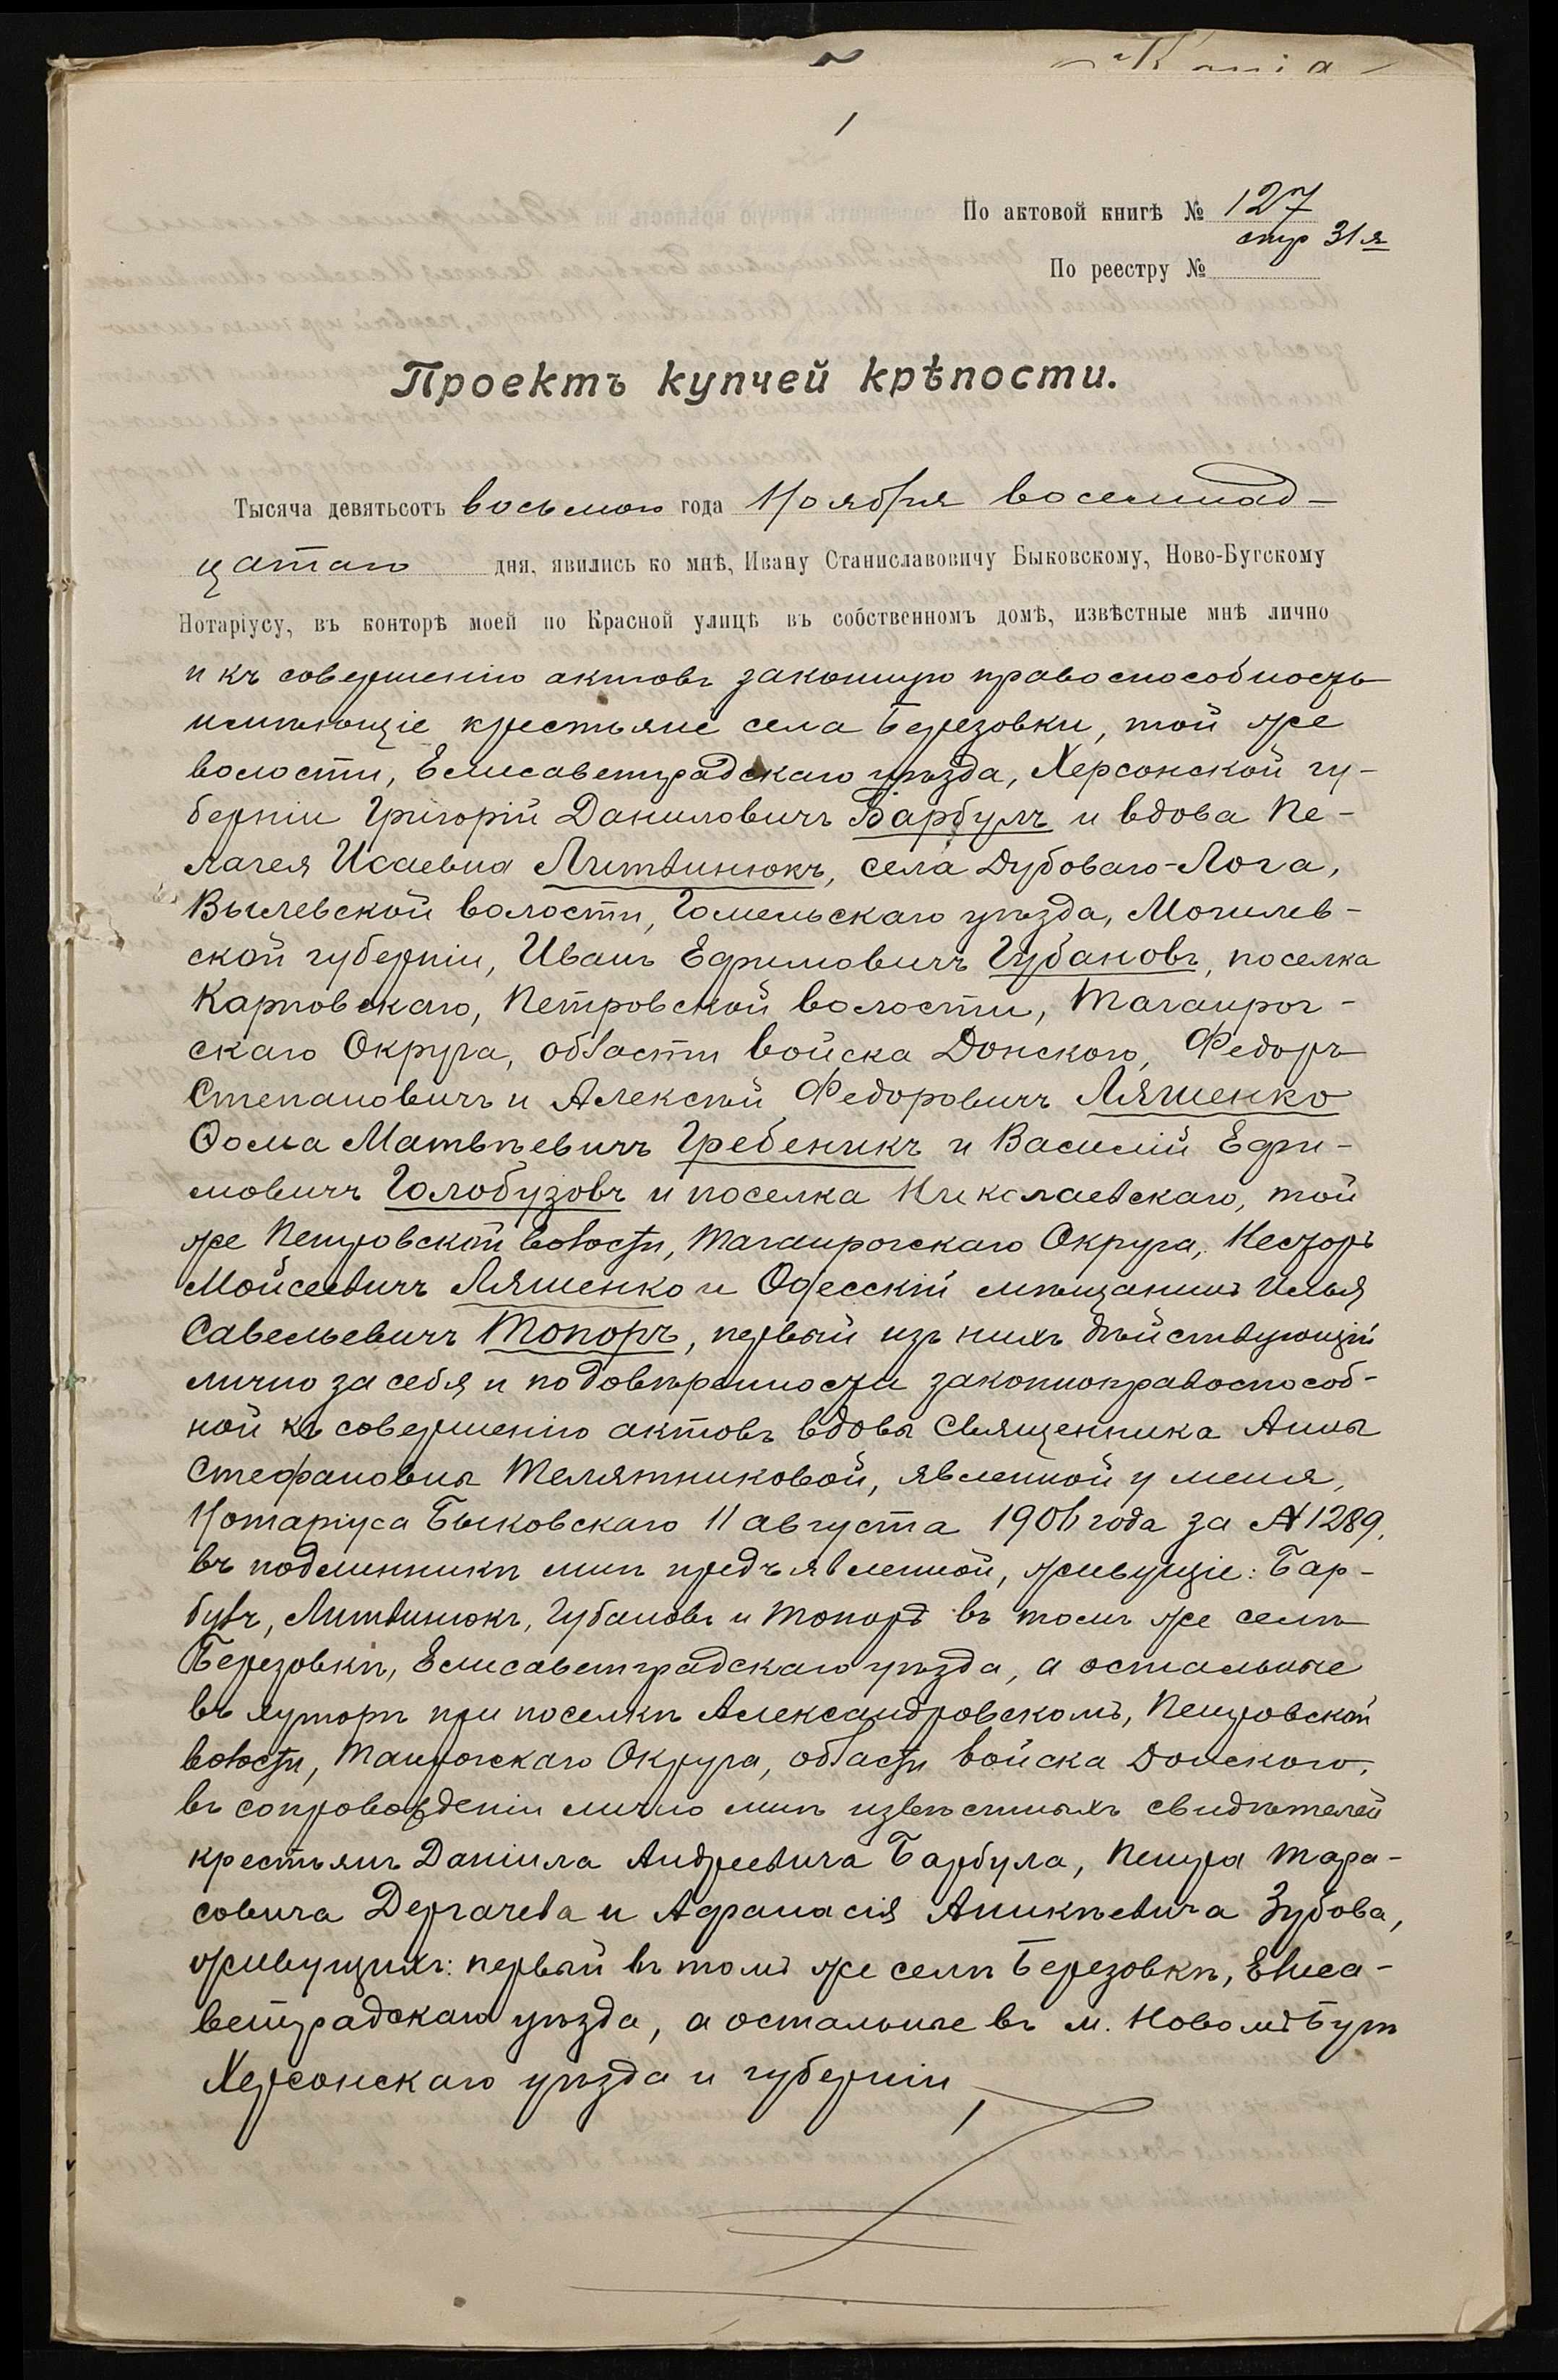 Копія
1
По актовой книгѣ № 127
стр 31я
По реестру №
Проектъ купчей крѣпости.
Тысяча девятьсотъ восьмого года Ноября восемнад-
цатаго дня, явились ко мнѣ, Ивану Станиславовичу Быковскому, Ново-Бугскому
Нотаріусу, въ конторѣ моей по Красной улицѣ въ собственномъ домѣ, извѣстные мнѣ лично
и къ совершенію актовъ законную правоспособность
имѣющіе крестьяне села Березовки, той же
волости, Елисаветградскаго уѣзда, Херсонской гу-
берніи Григорій Даниловичъ Барбулъ и вдова Пе-
лагея Исаевна Литвинюкъ, села Дубоваго-Лога,
Вылевской волости, Гомельскаго уѣзда, Могилев-
ской губерніи, Иванъ Ефимовичъ Губановъ, поселка
Карповскаго, Петровской волости, Таганрог-
скаго Округа, области войска Донского, Федоръ
Степановичъ и Алексѣй Федоровичъ Ляшенко
Ѳома Матвѣевичъ Гребеникъ и Василій Ефи-
мовичъ Голобузовъ и поселка Николаевскаго, той
же Петровской волости, Таганрогскаго Округа, Несторъ
Мойсеевичъ Ляшенко и Одесскій мѣщанинъ Илья
Савельевичъ Топоръ, первый изъ нихъ дѣйствующій
лично за себя и по довѣренности законноправоспособ-
ной къ совершенію актовъ вдовы Священника Анны
Стефановны Телятниковой, явленной у меня,
Нотаріуса Быковскаго 11 августа 1906 года за № 1289,
въ подлинникѣ мнѣ предъявленной, живущіе: Бар-
булъ, Литвинюкъ, Губановъ и Топоръ въ томъ же селѣ
Березовкѣ, Елисаветградскаго уѣзда, а остальные
въ хуторѣ при поселкѣ Александровскомъ, Петровской
волости, Таирогскаго Округа, области войска Донского,
въ сопровожденіи лично мнѣ извѣстныхъ свидѣтелей
крестьянъ Даніила Андреевича Барбула, Петра Тара-
совича Дергачева и Афанасія Аникѣевича Зубова,
живущихъ: первый въ томъ же селѣ Березовкѣ, Елиса-
ветградскаго уѣзда, а остальные въ м. Новомъ Бугѣ
Херсонскаго уѣзда и губерніи